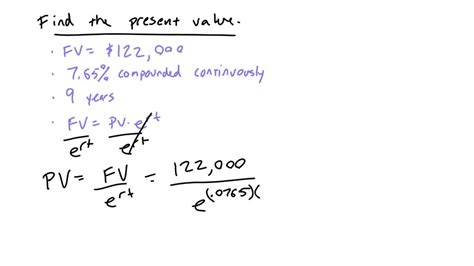 Find the present value.
· FV = $122,000
· 7.65% compounded continuously
· 9 years
· FV = PV · e^rt
e^rt e^rt
PV = FV / e^rt = 122,000 / e^(.0765)(